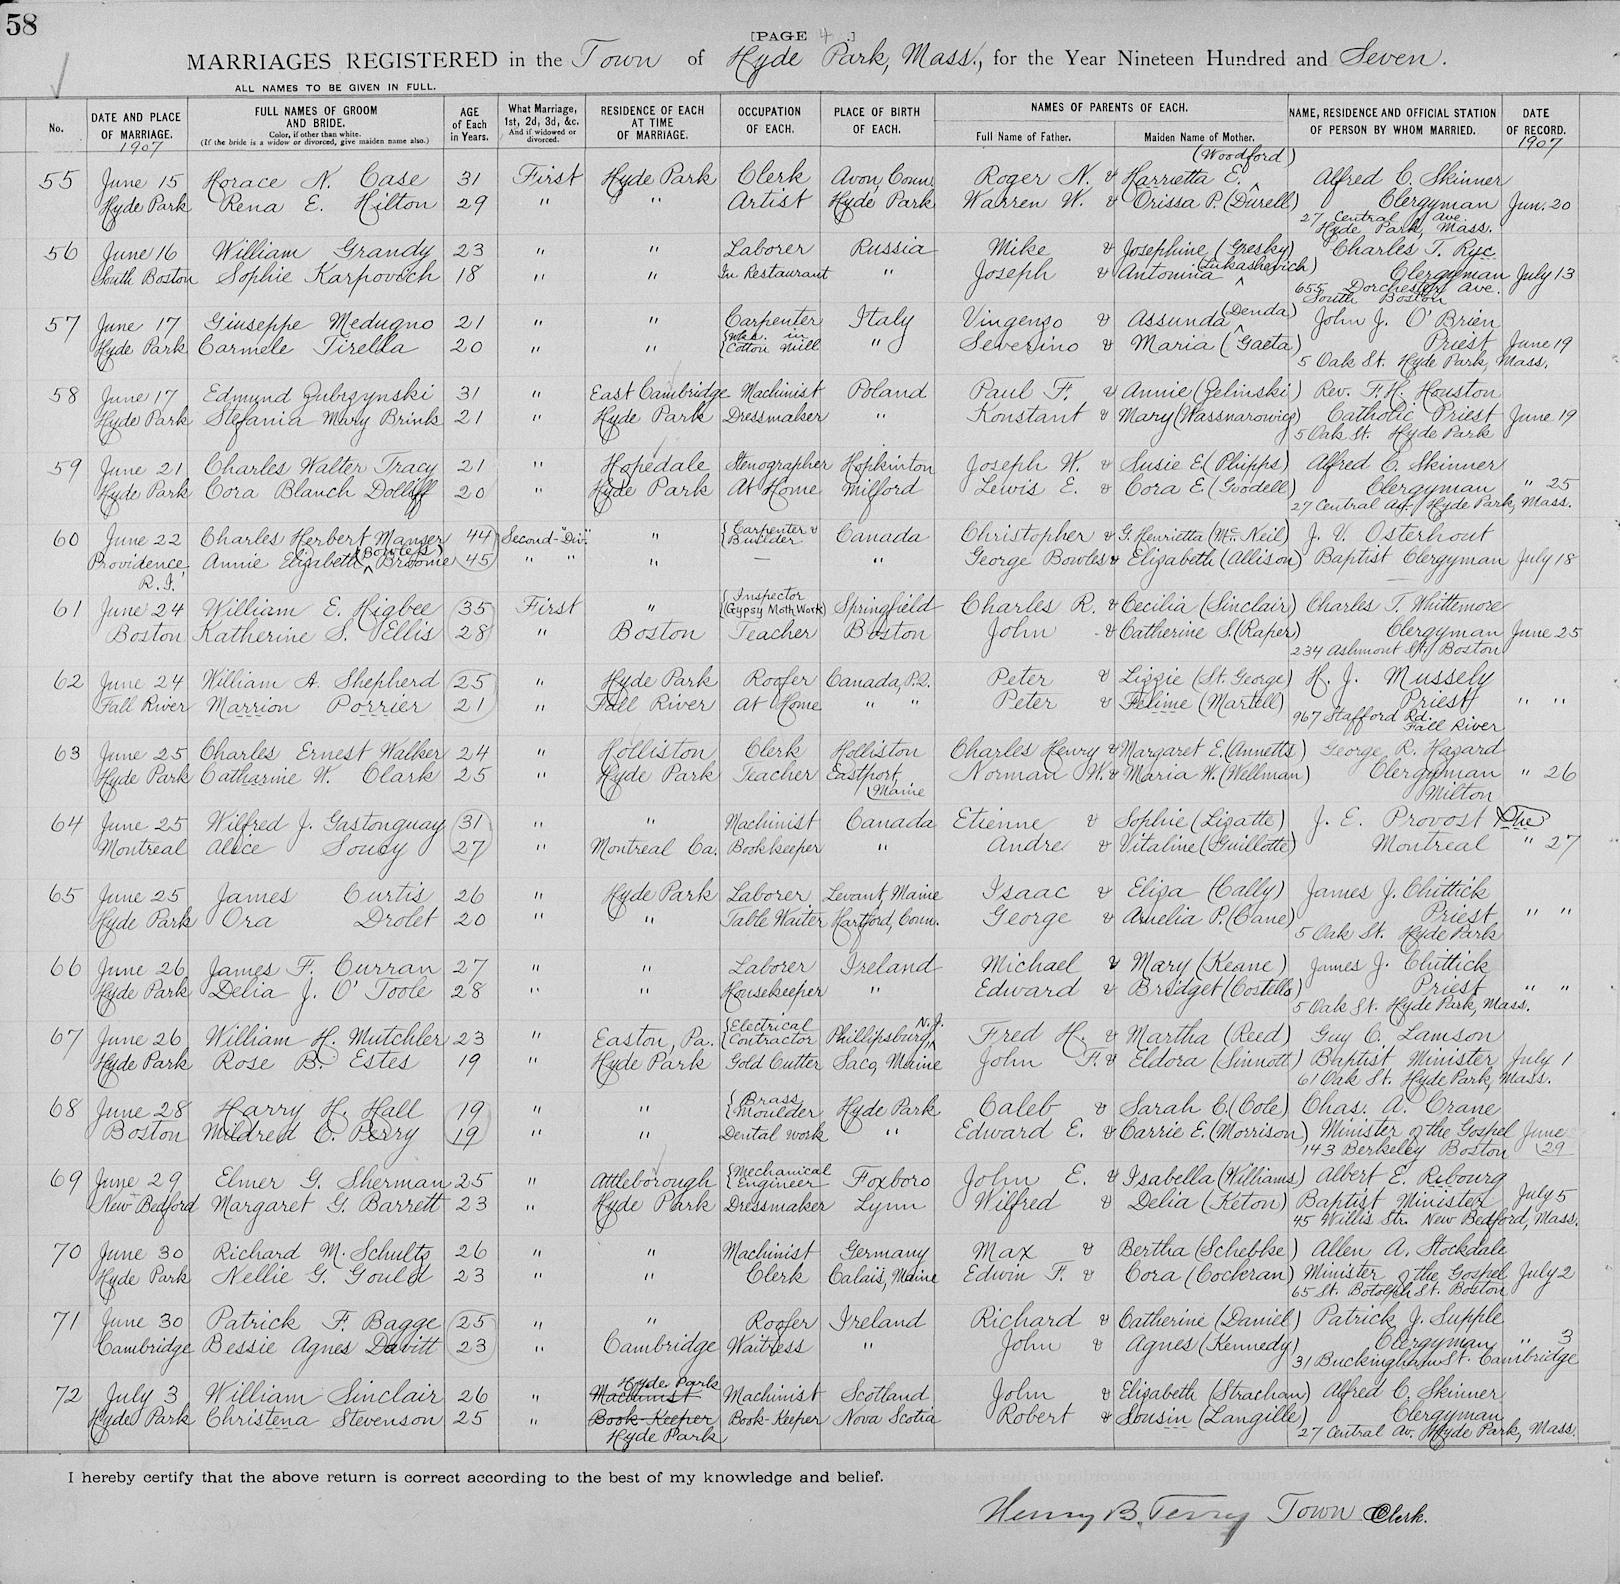 58
[PAGE 4.]
MARRIAGES REGISTERED in the Town of Hyde Park, Mass., for the Year Nineteen Hundred and Seven.
ALL NAMES TO BE GIVEN IN FULL.
No. | DATE AND PLACE OF MARRIAGE. 1907 | FULL NAMES OF GROOM AND BRIDE. Color, if other than white. (If the bride is a widow or divorced, give maiden name also.) | AGE of Each in Years. | What Marriage, 1st, 2d, 3d, &c. And if widowed or divorced. | RESIDENCE OF EACH AT TIME OF MARRIAGE. | OCCUPATION OF EACH. | PLACE OF BIRTH OF EACH. | NAMES OF PARENTS OF EACH. Full Name of Father. Maiden Name of Mother. | NAME, RESIDENCE AND OFFICIAL STATION OF PERSON BY WHOM MARRIED. | DATE OF RECORD. 1907
(Woodford)
55 June 15 Horace N. Case 31 First Hyde Park Clerk Avon, Conn. Roger N. & Harrietta E. Alfred C. Skinner
Hyde Park Rena E. Hilton 29 " " Artist Hyde Park Warren W. & Orissa P. (Durell) Clergyman Jun. 20
27 Central Ave.
Hyde Park, Mass.
56 June 16 William Grandy 23 " " Laborer Russia Mike & Josephine (Gresky) Charles T. Ryc.
South Boston Sophie Karpovech 18 " " In Restaurant " Joseph & Antomina (Lukashevich) Clergyman July 13
655 Dorchester Ave.
South Boston
57 June 17 Giuseppe Medugno 21 " " Carpenter Italy Vingenso & Assunda (Denda) John J. O'Brien
Hyde Park Carmele Tirella 20 " " {Wks. in Cotton Mill " Severino & Maria (Gaeta) Priest June 19
5 Oak St. Hyde Park, Mass.
58 June 17 Edmund Zubrzynski 31 " East Cambridge Machinist Poland Paul F. & Annie (Zelinski) Rev. F. H. Houston
Hyde Park Stefania Mary Brinks 21 " Hyde Park Dressmaker " Konstant & Mary (Wassnarowicz) Catholic Priest June 19
5 Oak St. Hyde Park
59 June 21 Charles Walter Tracy 21 " Hopedale Stenographer Hopkinton Joseph W. & Susie E. (Phipps) Alfred C. Skinner
Hyde Park Cora Blanch Dolliff 20 " Hyde Park At Home Milford Lewis E. & Cora E. (Goodell) Clergyman " 25
27 Central Av. Hyde Park, Mass.
60 June 22 Charles Herbert Manser 44 Second-"Div." " {Carpenter & Builder Canada Christopher & G. Henrietta (McNeil) J. V. Osterhout
Providence, R.I. Annie Elizabeth (Bowles) Broome 45 " " " — " George Bowles & Elizabeth (Allison) Baptist Clergyman July 18
61 June 24 William E. Higbee 35 First " {Inspector (Gypsy Moth Work) Springfield Charles R. & Cecilia (Sinclair) Charles T. Whittemore
Boston Katherine S. Ellis 28 " Boston Teacher Boston John & Catherine S. (Raper) Clergyman June 25
234 Ashmont St. Boston
62 June 24 William A. Shepherd 25 " Hyde Park Roofer Canada, P.Q. Peter & Lizzie (St. George) H. J. Mussely
Fall River Marrion Porrier 21 " Fall River At Home " " Peter & Felime (Martell) Priest " "
967 Stafford Rd.
Fall River
63 June 25 Charles Ernest Walker 24 " Holliston Clerk Holliston Charles Henry & Margaret E. (Annetts) George R. Hazard
Hyde Park Catharine W. Clark 25 " Hyde Park Teacher Eastport, Maine Norman W. & Maria W. (Wellman) Clergyman " 26
Milton
64 June 25 Wilfred J. Gastonguay 31 " " Machinist Canada Etienne & Sophie (Lizatte) J. E. Provost Ptre
Montreal Alice Soucy 27 " Montreal Ca. Bookkeeper " Andre & Vitaline (Guillotte) Montreal " 27
65 June 25 James Curtis 26 " Hyde Park Laborer Levant, Maine Isaac & Eliza (Cally) James J. Chittick
Hyde Park Ora Drolet 20 " " Table Waiter Hartford, Conn. George & Amelia P. (Cane) Priest " "
5 Oak St. Hyde Park
66 June 26 James F. Curran 27 " " Laborer Ireland Michael & Mary (Keane) James J. Chittick
Hyde Park Delia J. O'Toole 28 " " Housekeeper " Edward & Bridget (Costello) Priest " "
5 Oak St. Hyde Park, Mass.
67 June 26 William H. Mutchler 23 " Easton, Pa. {Electrical Contractor Phillipsburg, N.J. Fred H. & Martha (Reed) Guy C. Lamson
Hyde Park Rose B. Estes 19 " Hyde Park Gold Cutter Saco, Maine John F. & Eldora (Sinnott) Baptist Minister July 1
61 Oak St. Hyde Park, Mass.
68 June 28 Harry H. Hall 19 " " {Brass Moulder Hyde Park Caleb & Sarah C. (Cole) Chas. A. Crane
Boston Mildred C. Perry 19 " " Dental work " Edward E. & Carrie E. (Morrison) Minister of the Gospel June 29
143 Berkeley Boston
69 June 29 Elmer G. Sherman 25 " Attleborough {Mechanical Engineer Foxboro John E. & Isabella (Williams) Albert E. Ribourg
New Bedford Margaret G. Barrett 23 " Hyde Park Dressmaker Lynn Wilfred & Delia (Keton) Baptist Minister July 5
45 Willis Str. New Bedford, Mass.
70 June 30 Richard M. Schultz 26 " " Machinist Germany Max & Bertha (Schebke) Allen A. Stockdale
Hyde Park Nellie G. Gould 23 " " Clerk Calais, Maine Edwin F. & Cora (Cochran) Minister of the Gospel July 2
65 St. Botolph St. Boston
71 June 30 Patrick F. Bagge 25 " " Roofer Ireland Richard & Catherine (Daniel) Patrick J. Supple
Cambridge Bessie Agnes Davitt 23 " Cambridge Waitress " John & Agnes (Kennedy) Clergyman " 3
31 Buckingham St. Cambridge
72 July 3 William Sinclair 26 " Hyde Park Machinist Machinist Scotland John & Elizabeth (Strachan) Alfred C. Skinner
Hyde Park Christena Stevenson 25 " Book-Keeper Hyde Park Book-Keeper Nova Scotia Robert & Sousin (Langille) Clergyman
27 Central Av. Hyde Park, Mass.
I hereby certify that the above return is correct according to the best of my knowledge and belief.
Henry B. Terry Town Clerk.